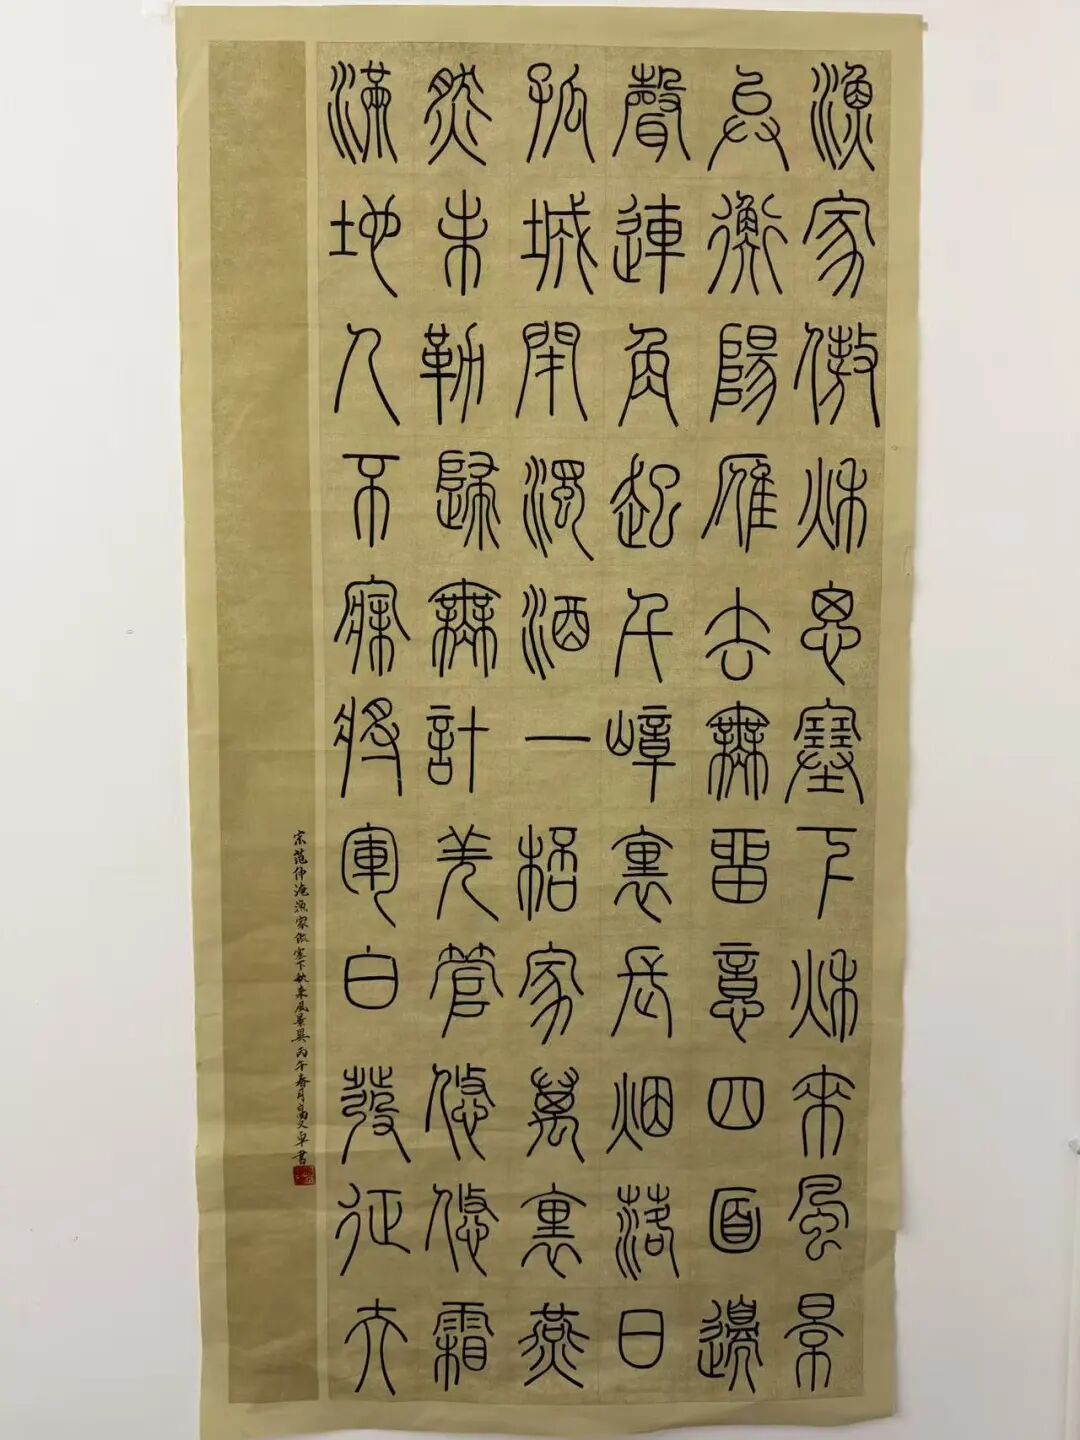 漁家傲秋思塞下秋來風景
異衡陽雁去無留意四面邊
聲連角起千嶂裏長烟落日
孤城閉濁酒一桮家萬裏燕
然未勒歸無計羌管悠悠霜
滿地人不寐將軍白發征夫
宋范仲淹漁家傲塞下秋来風景異 丙午春月高文卓書